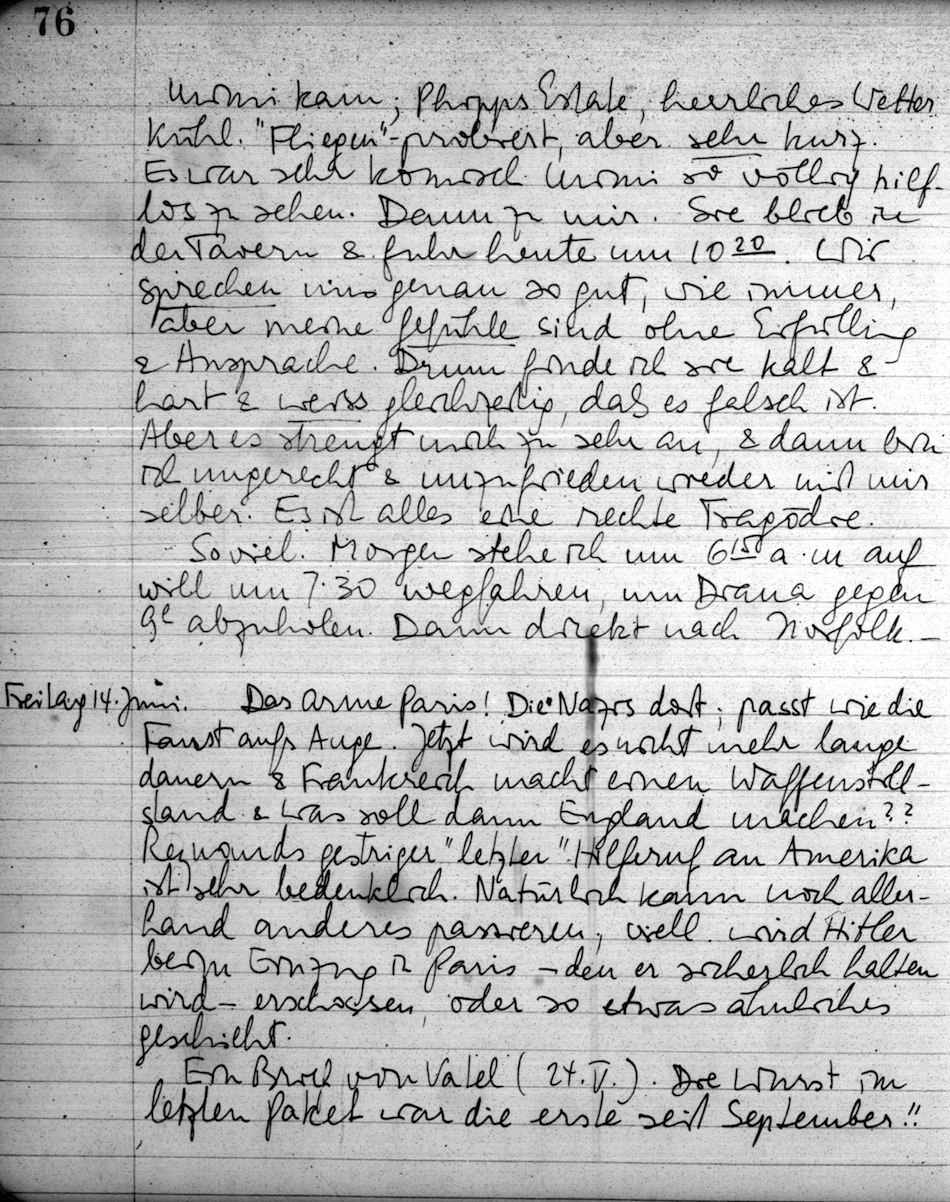 76
Momi kam; Phipps Estate, herrliches Wetter.
Kühl. "Fliegen"-probiert, aber sehr kurz.
Es war sehr komisch Momi so völlig hilf-
los zu sehen. Dann zu mir. Sie blieb in
der Tavern & fuhr heute um 10 20. Wir
sprechen uns genau so gut, wie immer,
aber meine Gefühle sind ohne Erfüllung
& Ansprache. Drum finde ich sie kalt &
hart & weiss gleichzeitig, dass es falsch ist.
Aber es strengt mich zu sehr an, & dann bin
ich ungerecht & unzufrieden wieder mit mir
selber. Es ist alles eine rechte Tragödie.
Soviel. Morgen stehe ich um 6 15 a.m auf
will um 7.30 wegfahren, um Diana gegen
9h abzuholen. Dann direkt nach Norfolk. —
Freitag 14. Juni. Das arme Paris! Die Nazis dort; passt wie die
Faust aufs Auge. Jetzt wird es nicht mehr lange
dauern & Frankreich macht einen Waffenstill-
stand & was soll dann England machen??
Reynauds gestriger "letzter" Hilferuf an Amerika
ist sehr bedenklich. Natürlich kann noch aller-
hand anderes passieren, viell. wird Hitler
beim Einzug in Paris – den er sicherlich halten
wird – erschossen, oder so etwas ähnliches
geschieht.
Ein Brief von Vatel (24.V.). Die Wurst im
letzten Paket war die erste seit September!!